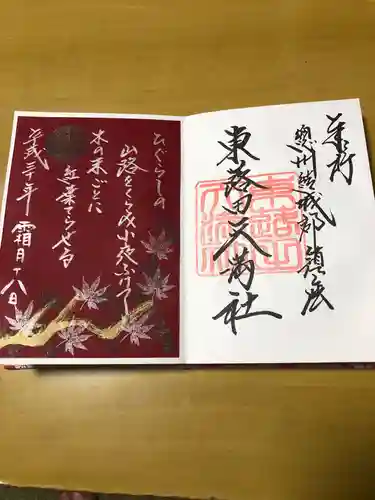 奉拝
奥州結城郡 鎮座
東蕗田天満社
ひぐらしの
山路をくらみ小夜ふけて
木の末ごとに
紅葉てらせる
平成三十年 霜月十八日